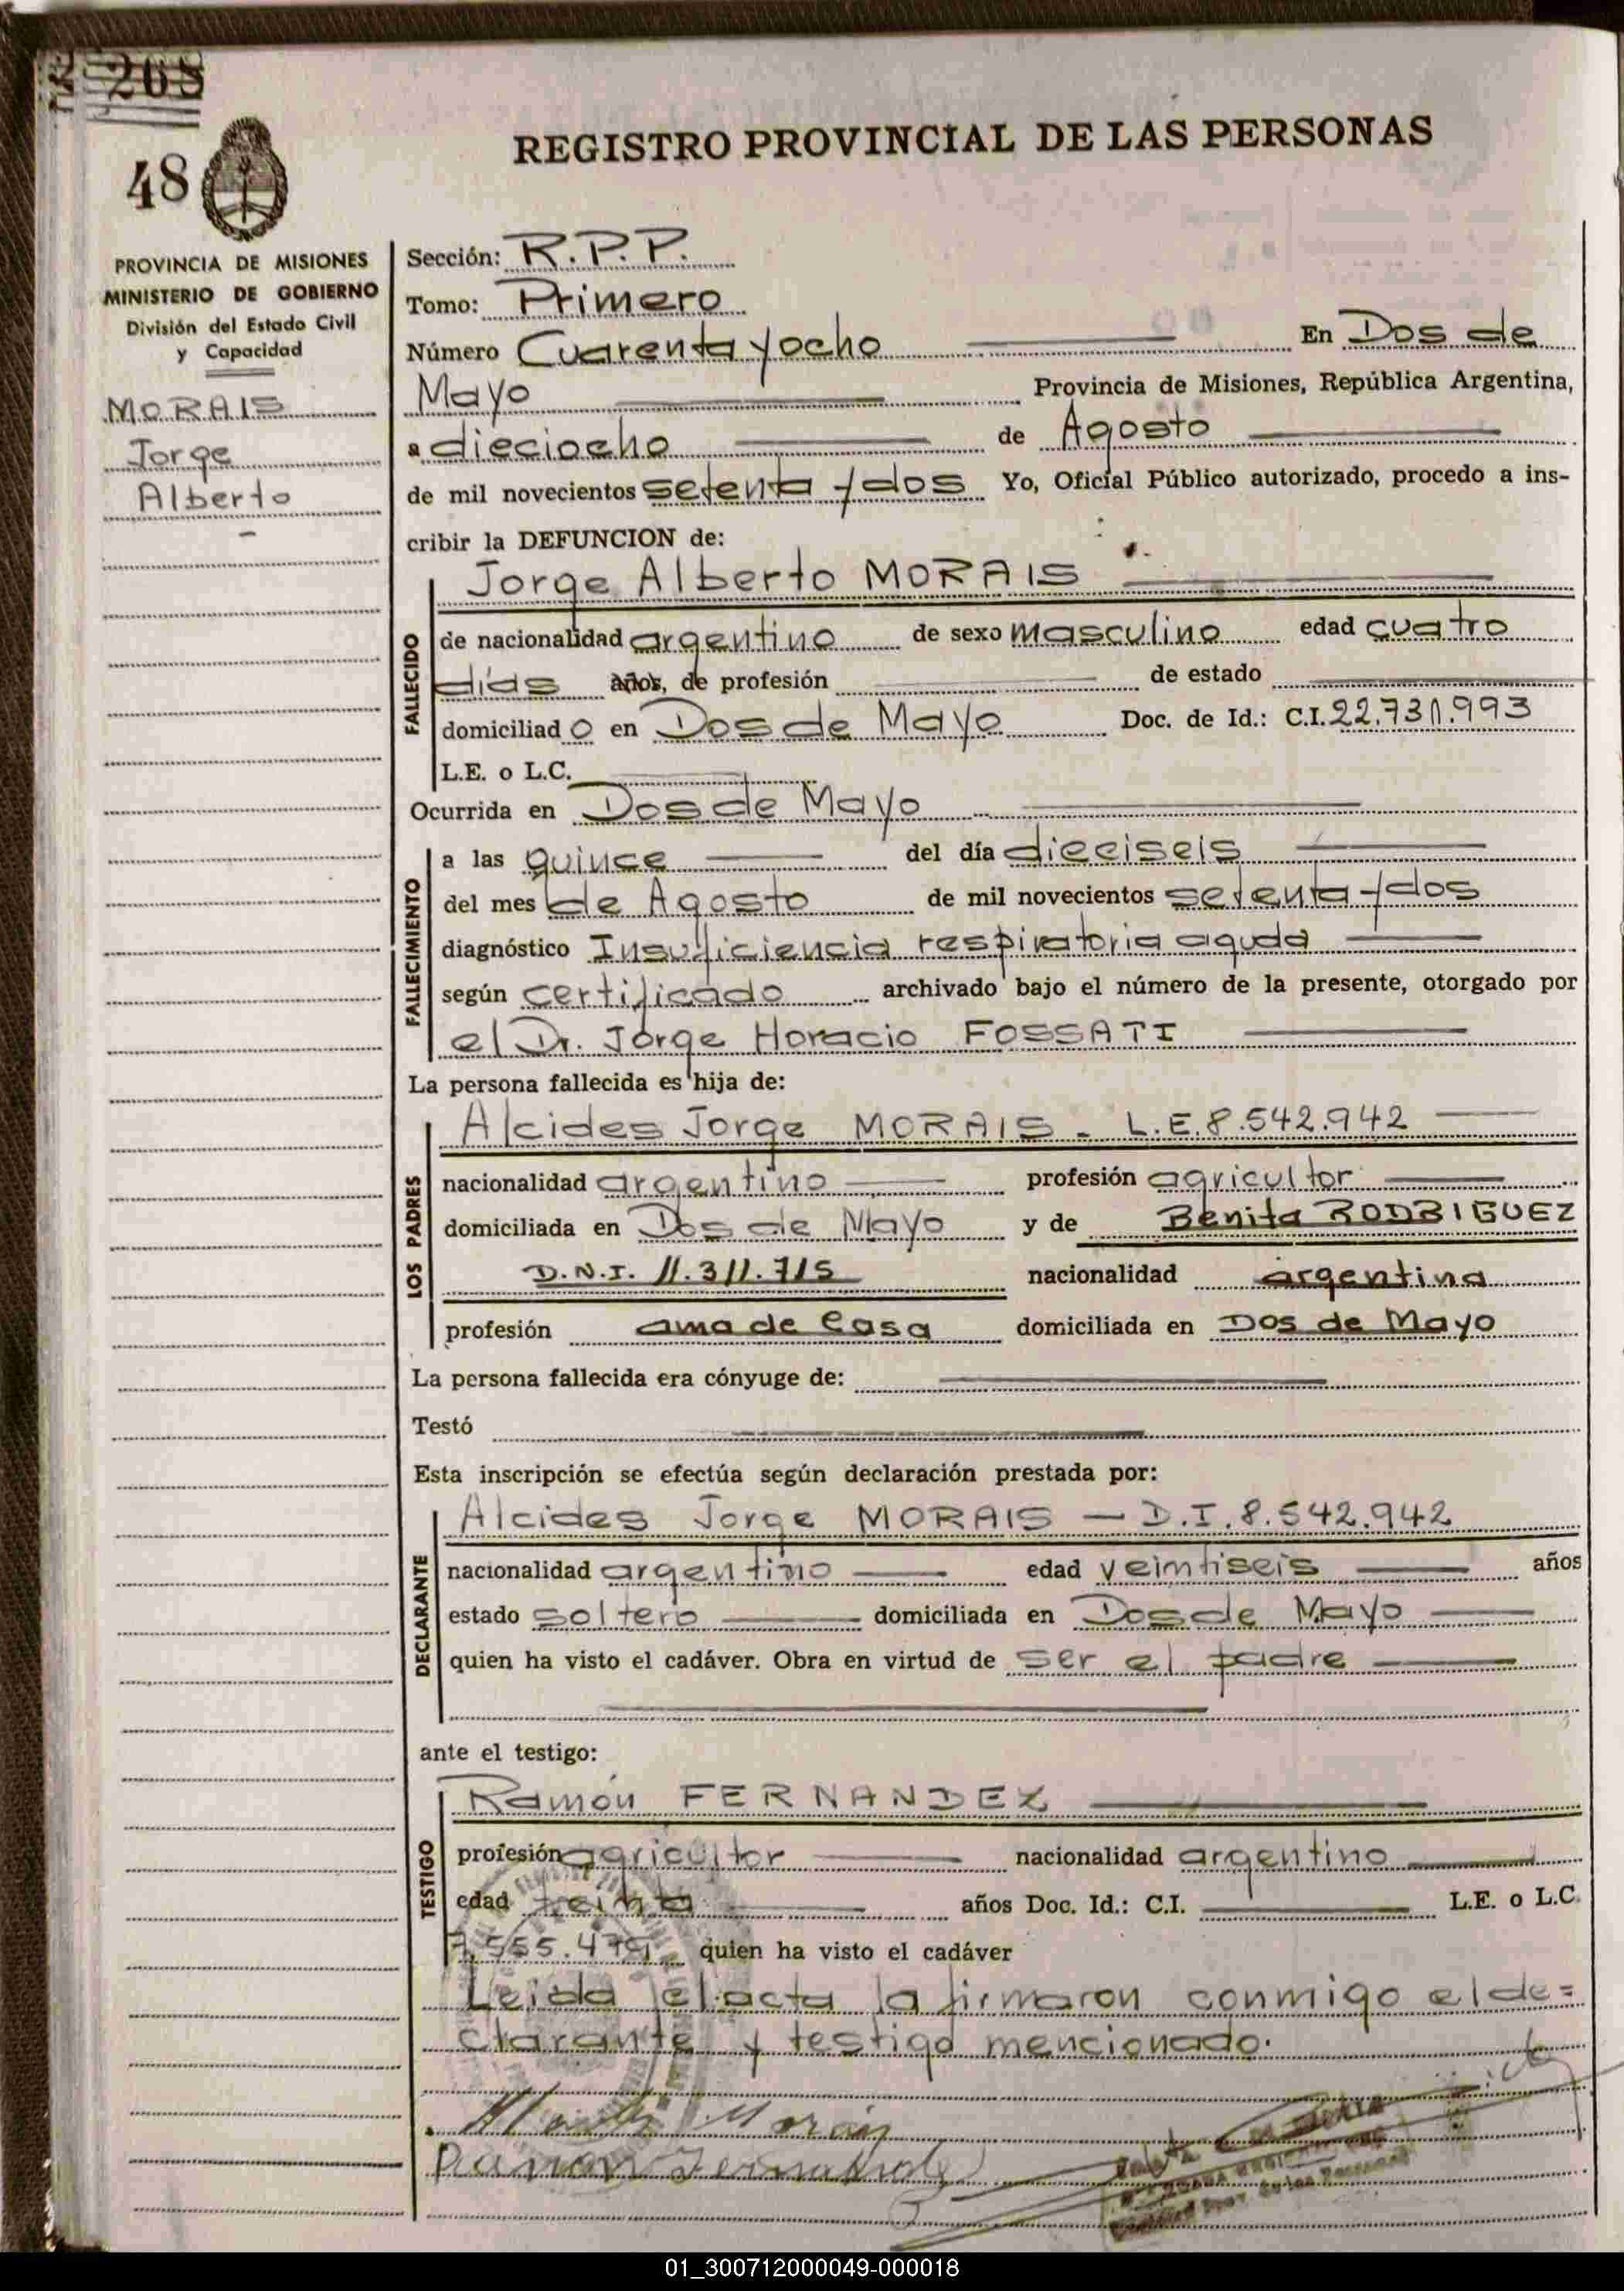 268
48
REGISTRO PROVINCIAL DE LAS PERSONAS
PROVINCIA DE MISIONES
MINISTERIO DE GOBIERNO
División del Estado Civil
y Capacidad
MORAIS
Jorge
Alberto
Sección: R.P.P.
Tomo: Primero
Número Cuarenta y ocho En Dos de
Mayo Provincia de Misiones, República Argentina,
a dieciocho de Agosto
de mil novecientos setenta y dos Yo, Oficial Público autorizado, procedo a ins-
cribir la DEFUNCION de:
Jorge Alberto MORAIS
FALLECIDO
de nacionalidad argentino de sexo masculino edad cuatro
días años, de profesión de estado
domiciliado en Dos de Mayo Doc. de Id.: C.I. 22.731.993
L.E. o L.C.
Ocurrida en Dos de Mayo
FALLECIMIENTO
a las quince del día dieciseis
del mes de Agosto de mil novecientos setenta y dos
diagnóstico Insuficiencia respiratoria aguda
según certificado archivado bajo el número de la presente, otorgado por
el Dr. Jorge Horacio FOSSATI
La persona fallecida es hija de:
LOS PADRES
Alcides Jorge MORAIS - L.E. 8.542.942
nacionalidad argentino profesión agricultor
domiciliada en Dos de Mayo y de Benita RODRIGUEZ
D.N.I. 11.311.715 nacionalidad argentina
profesión ama de Casa domiciliada en Dos de Mayo
La persona fallecida era cónyuge de:
Testó
Esta inscripción se efectúa según declaración prestada por:
DECLARANTE
Alcides Jorge MORAIS - D.I. 8.542.942
nacionalidad argentino edad veintiseis años
estado soltero domiciliada en Dos de Mayo
quien ha visto el cadáver. Obra en virtud de ser el padre
ante el testigo:
TESTIGO
Ramón FERNANDEZ
profesión agricultor nacionalidad argentino
edad años Doc. Id.: C.I. L.E. o L.C.
7.555.479 quien ha visto el cadáver
Leida el acta la firmaron conmigo el de=
clarante y testigo mencionado.
Ramon Fernandez
01_300712000049-000018